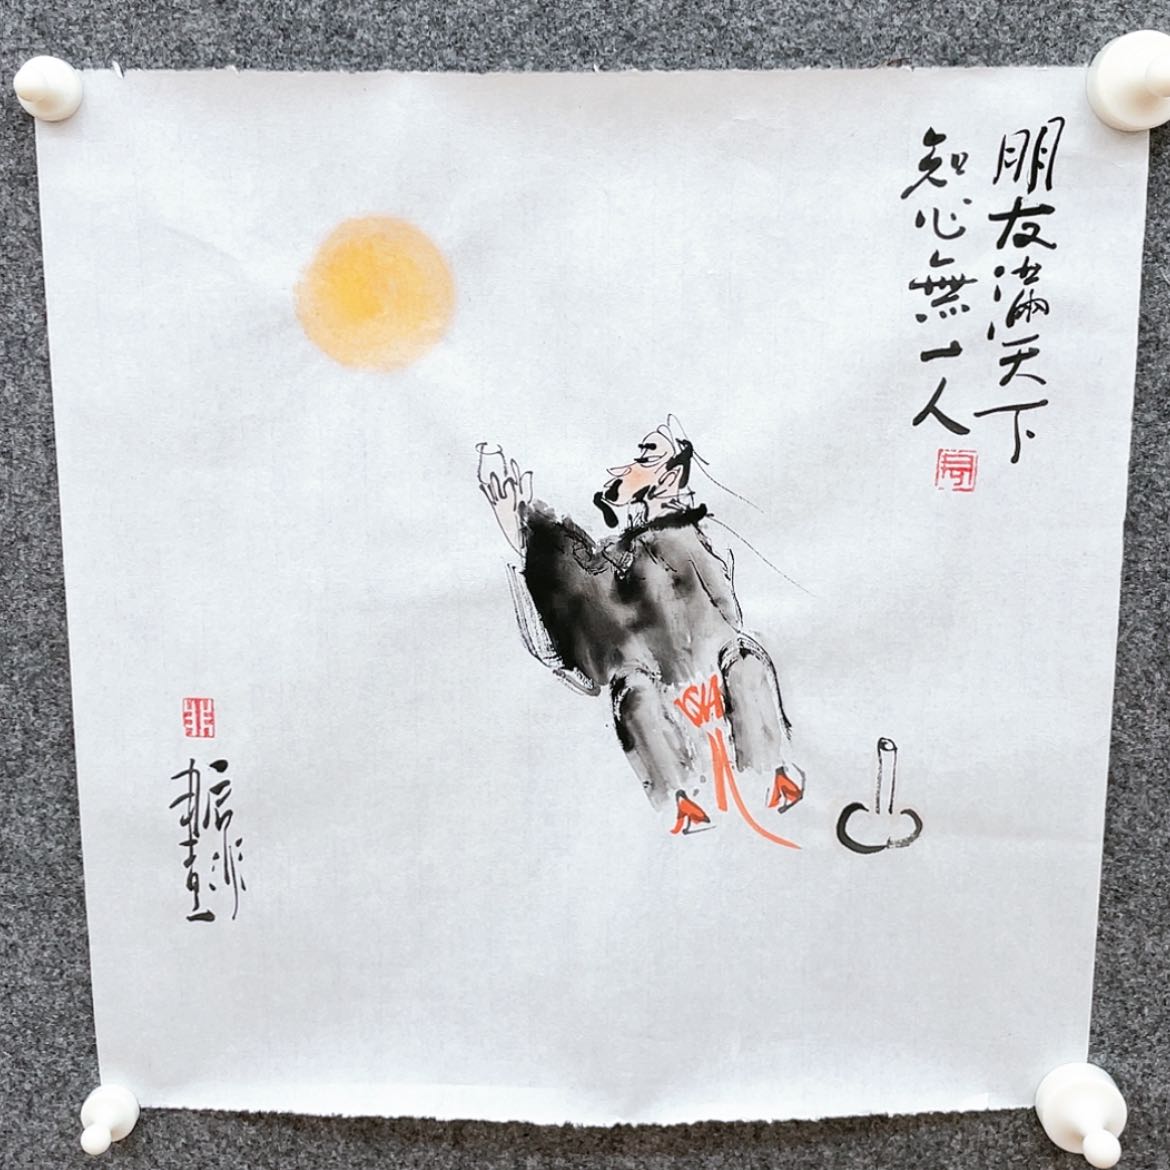 朋友滿天下
知心無一人
非
振非畫